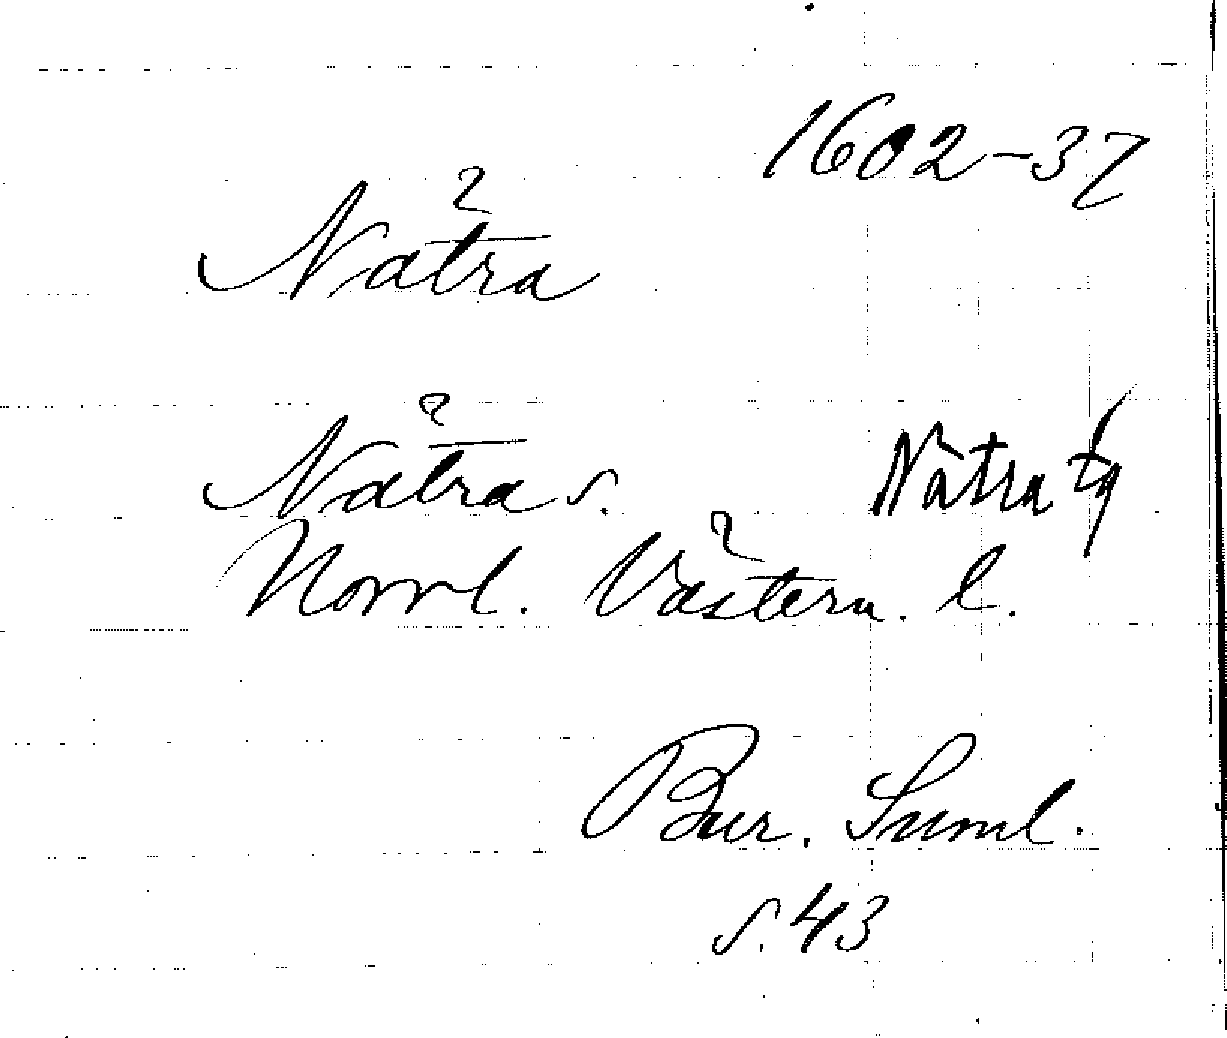 1602-37
Nätra
Nätra s. Nätra fg
Norrl. Västern. l.
Bur. Suml.
s. 43